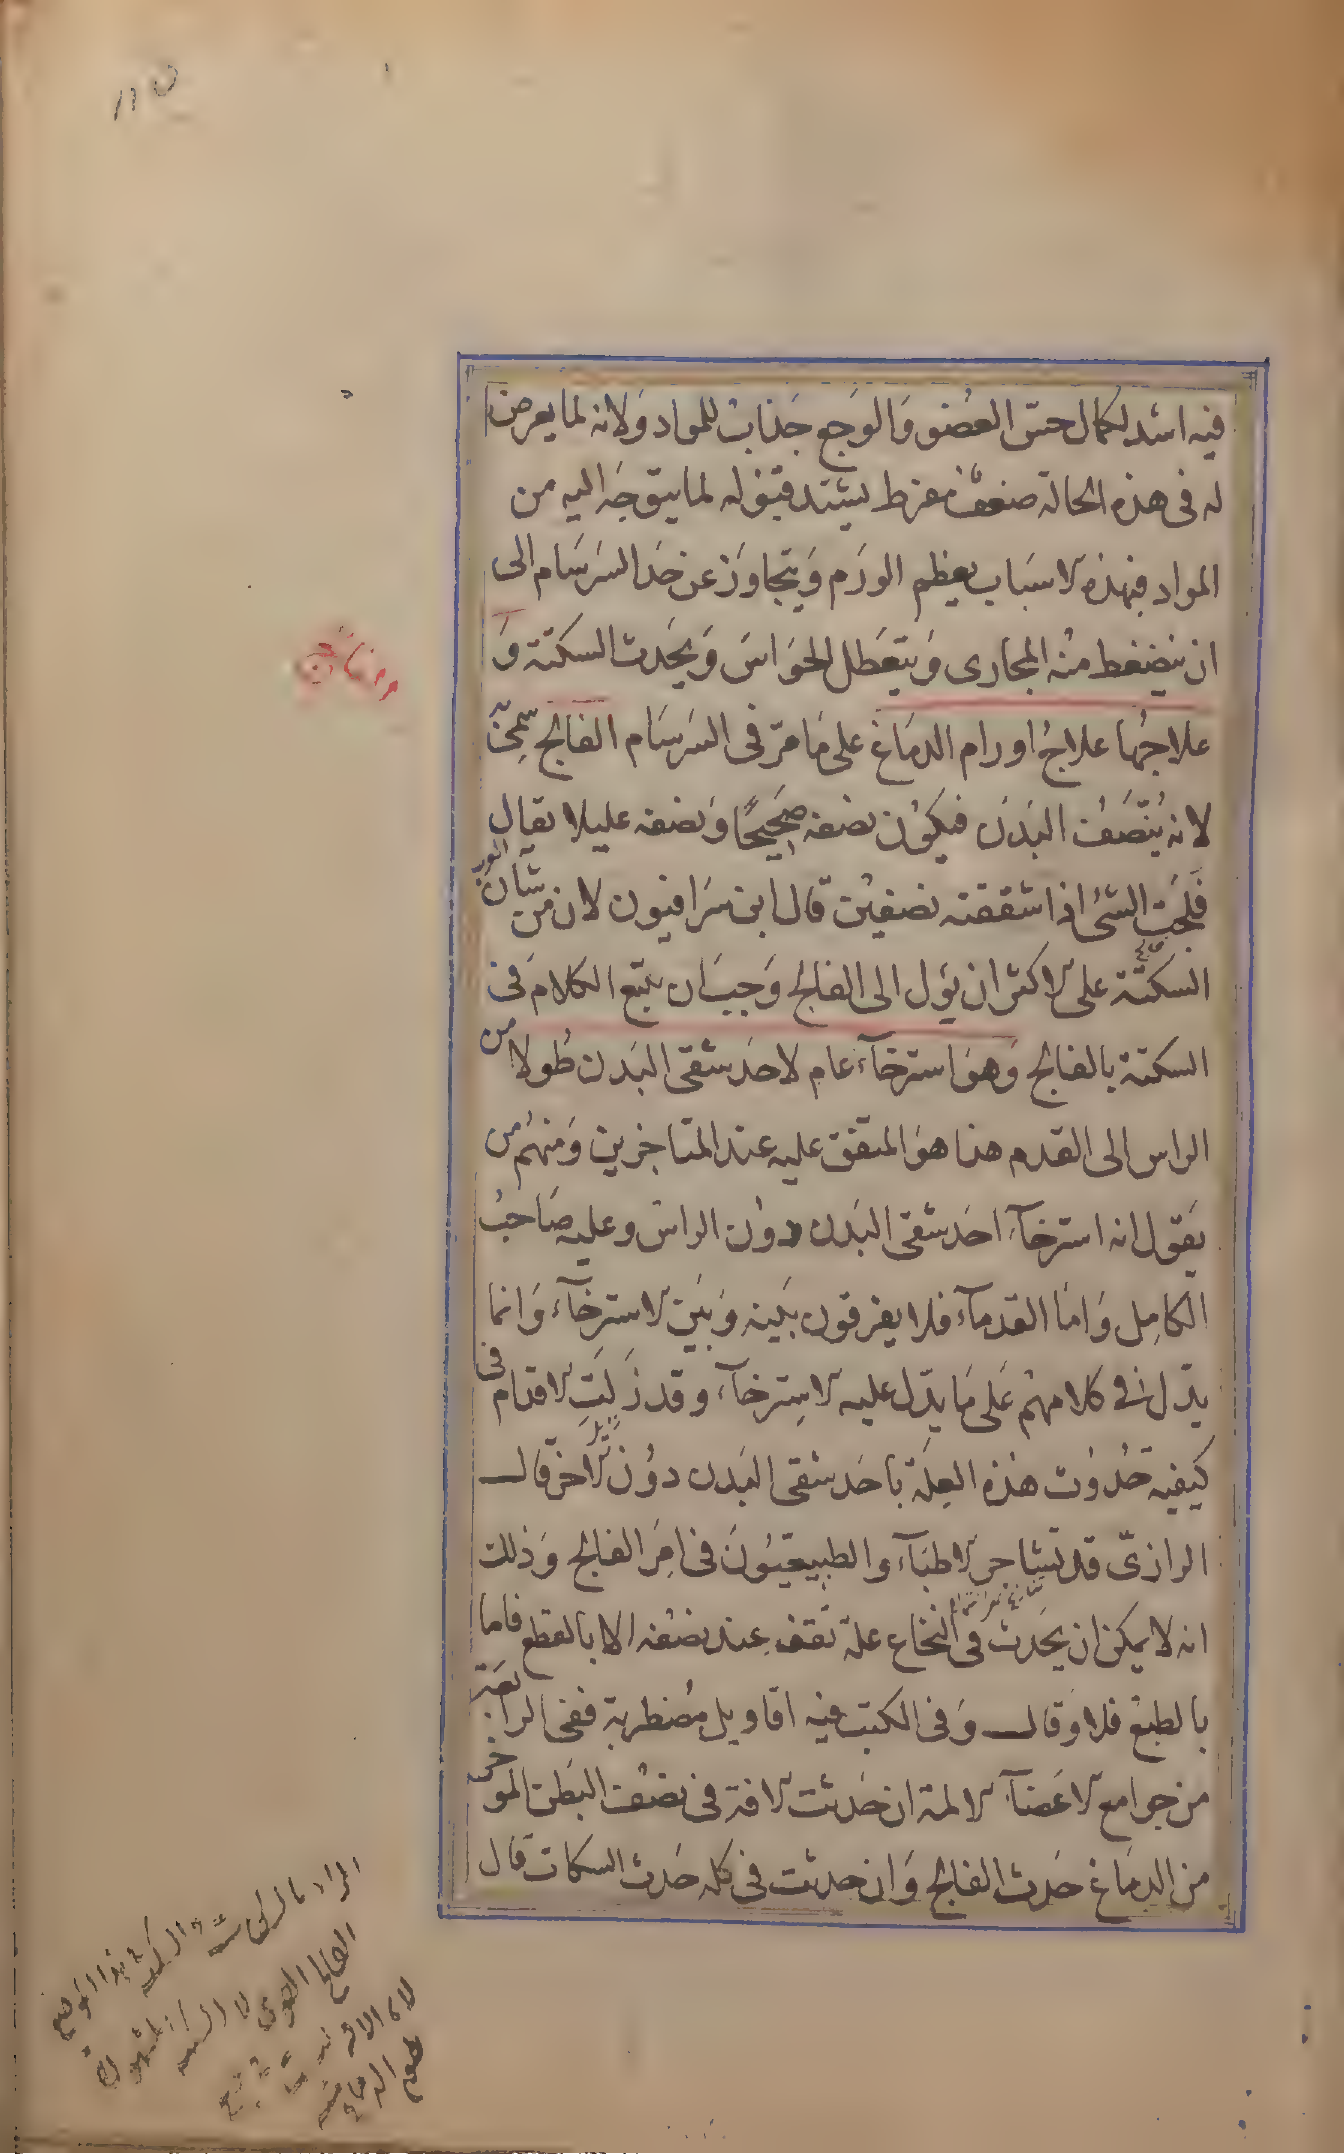 ١١٥
فيه اشد لكمال حسّ العضو وَالوَجع جَذابٌ للمواد وَلانه لما يعرض
له فى هذه الحالة ضعفٌ مفرط يشتد قبوله لما يتوجّه اليه من
المواد فبهذه الاسبَاب يعظم الورَم وَيتجاوَز عن حَدّ السَرسَام الى
ان ينضغط منْه المجارى وَيتعَطل الحوَاسّ وَيحَدث السكتة وَ
علاجُها علاجُ اورام الدمَاغ على مَا مرّ فى السَرسَام الفالج سمّى به
لانه يُنَصّف البَدَن فيكوُن نصفه صَحيحًا وَنصفه عليلا يقال
فَلَجتُ الشئ اذا شققته نصفين قال ابن سَرافيون لان من شان
السكتة على الاكثر ان يؤل الى الفالج وَجبَ ان يتبع الكلامَ فى
السكتة بالفالج وَهوَ استرخآء عام لاحَد شقى البَدن طُولا من
الراس الى القدم هذا هوَ المتفق عليه عند المتاخرين وَمنهمُ من
يَقول انه استرخآء احَد شقى البَدن دوُن الراسْ وعليه صَاحبُ
الكامِل وَامّا القدمآء فلا يفرقون بَينه وَبَين الاسترخآء وَانما
يدّل فى كلامهمُ عَلى مَا يدّل عليه الاسِترخآء وقد زَلَتِ الاقدَام فى
كيفية حُدوُث هذه العِلّة باحَد شقى البَدن دوُن الاخر قال
الرازىّ قد تشاجر الاطبَآء والطبيعيّوُنَ فى امَر الفالج وَذلك
انه لا يمكن ان يحَدث فى النخاع علة تَقف عِند نصْفه الا بالقطع فاما
بالطبعْ فلا وَقال وَفى الكتب فيه اقاويل مُضطربة ففى الرابعَة
من جوامع الاعَضآء الالمة ان حَدَثت الافة فى نصْف البَطن الموخر
من الدمَاغ حَدث الفالج وَان حدثت فى كله حَدث السكات قال
المراد بالسكات